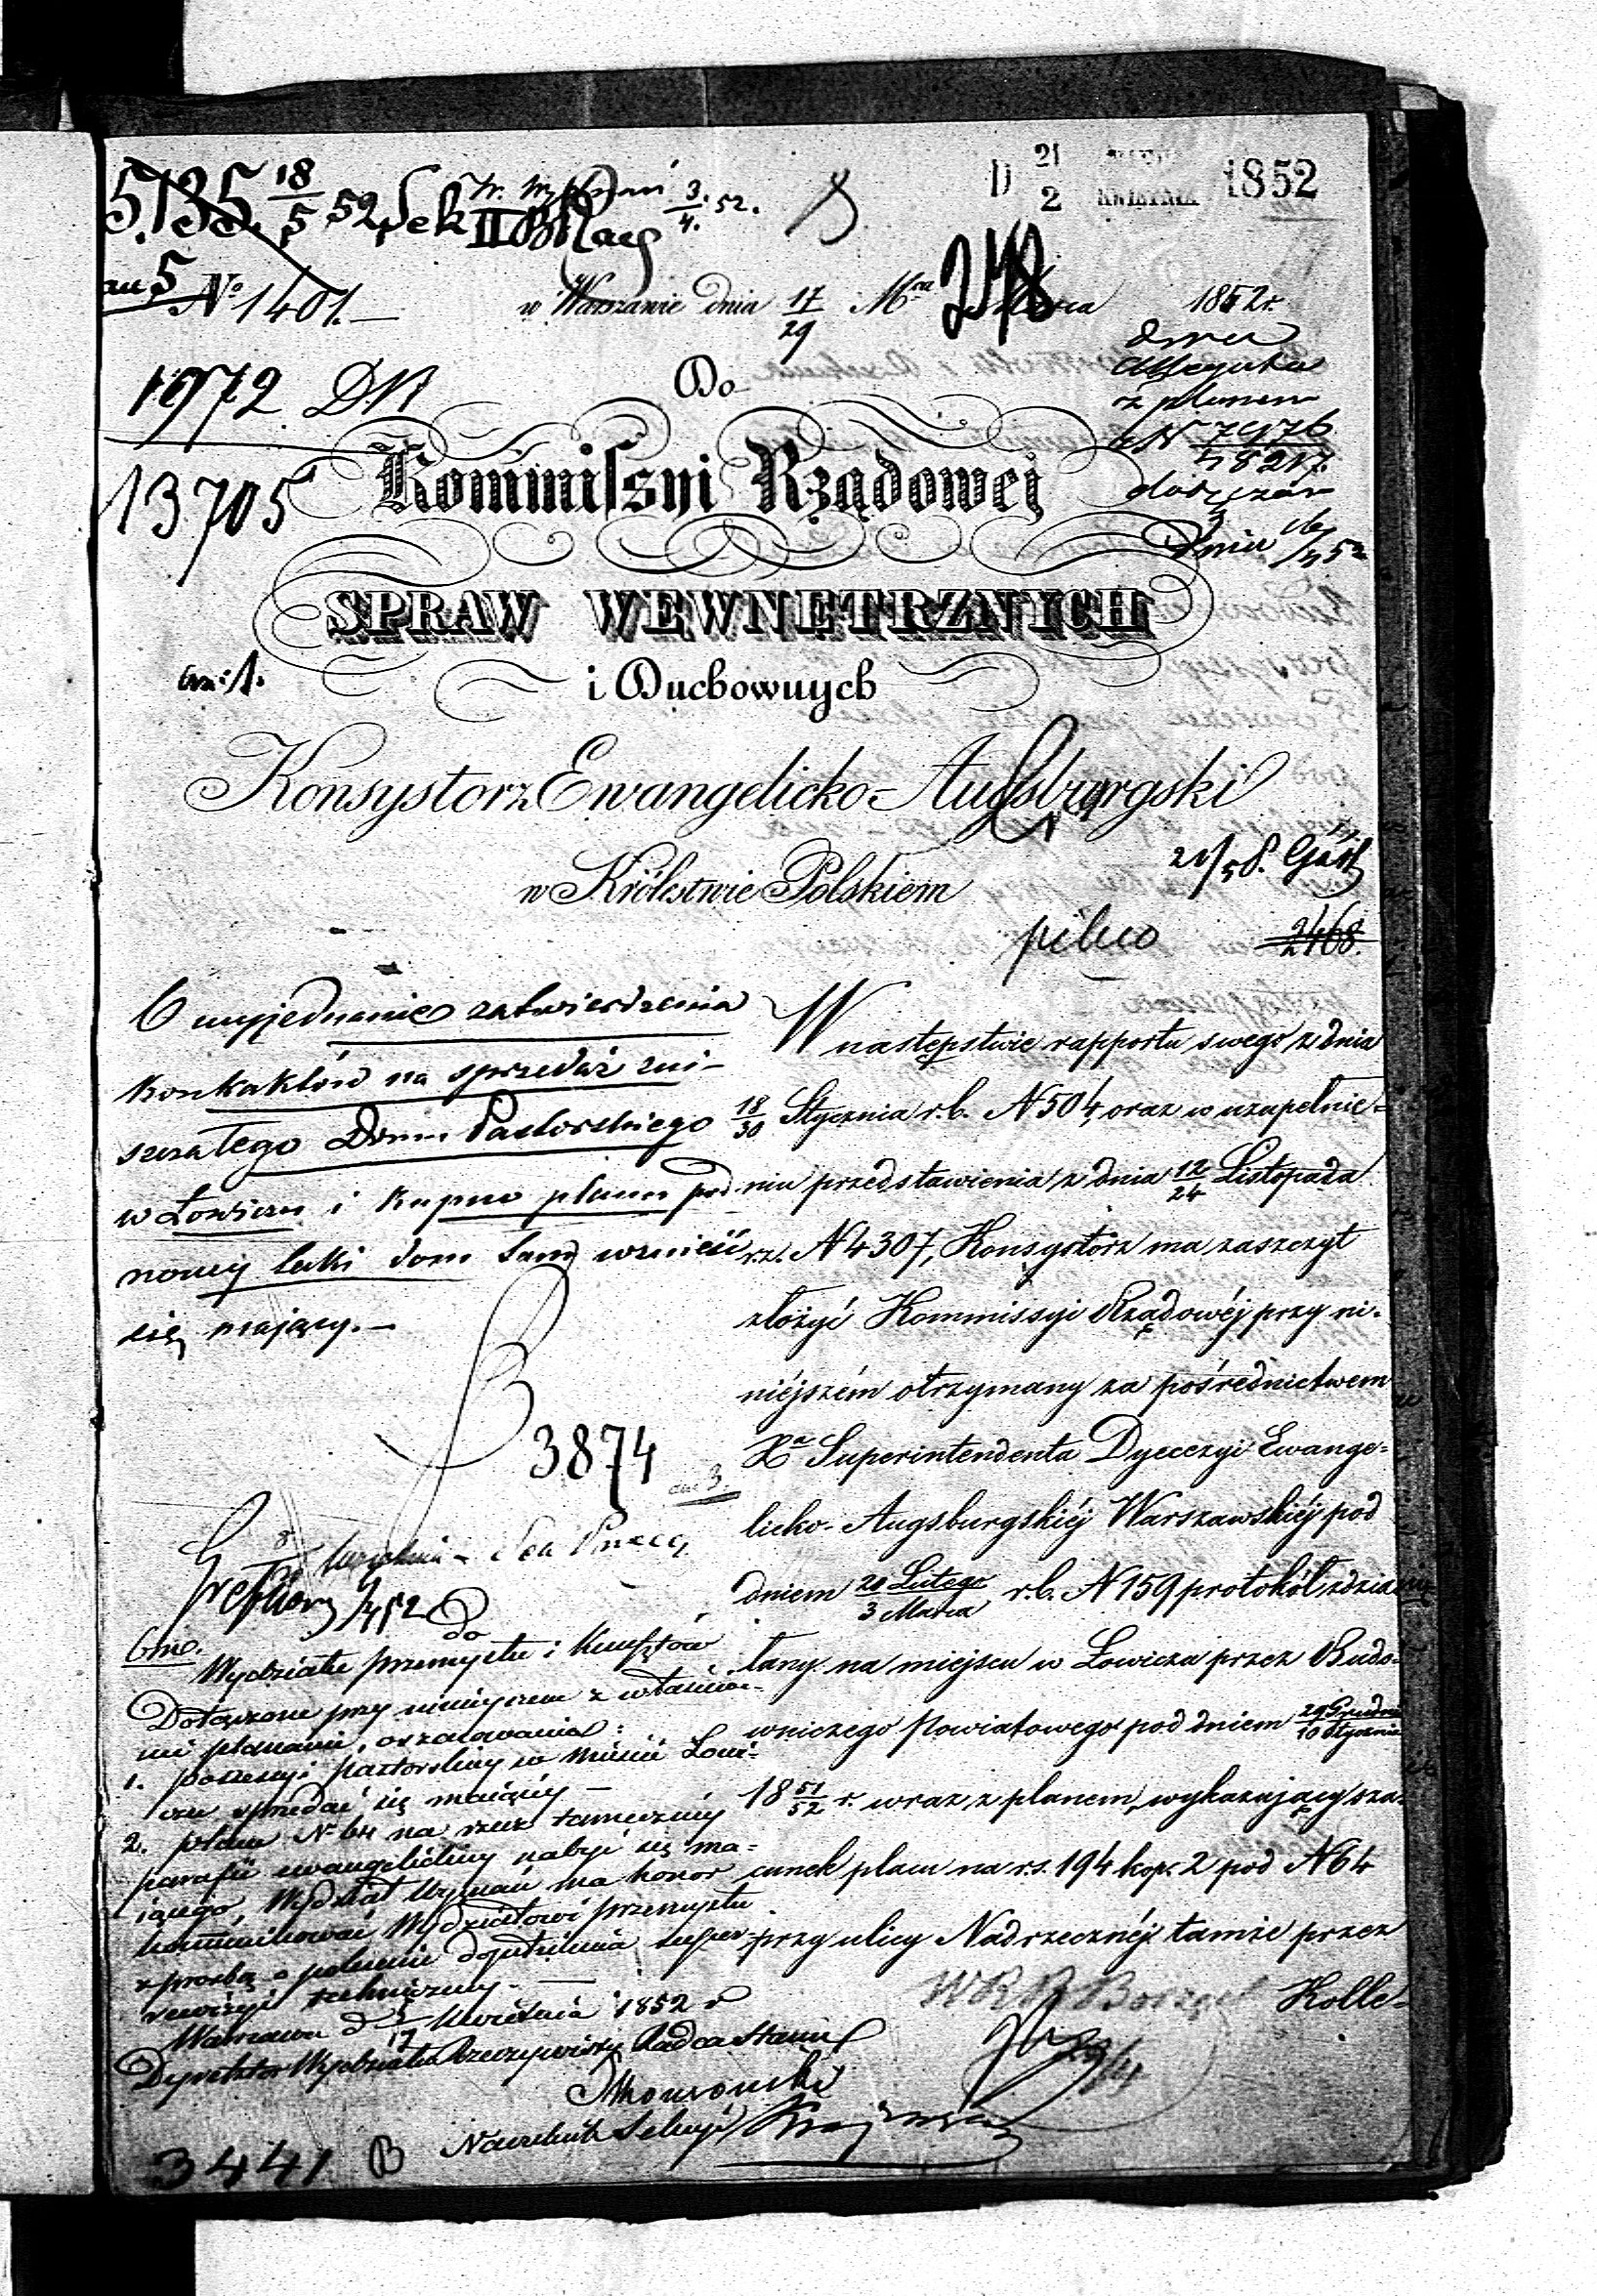 5135. 18/5 52 Sek II
3/4. 52.
D 21/2 KWIETNIA 1852
248
No 1401.—
w Warszawie dnia 17/29 Mca Marca 1852 r.
dwa
Allegata
z planem
1972
Do
13705
Dnia 16/4 52
Kommissyi Rządowej
SPRAW WEWNĘTRZNYCH
i Duchownych
Konsystorz Ewangelicko-Augsburgski
w Królestwie Polskiem
pilno
2468.
O wyjednanie zatwierdzenia
kontraktów na sprzedaż zni-
szczałego Domu Pastorskiego
w Łowiczu i kupno placu pod
nowy taki dom tamż wznieść
się mający.—
3874
W następstwie rapportu swego z dnia
18/30 Stycznia r.b. N 504, oraz w uzupełnie-
niu przedstawienia z dnia 12/24 Listopada
r.z. N 4307, Konsystorz ma zaszczyt
złożyć Kommissyi Rządowéj przy ni-
niéjszém otrzymany za pośrednictwem
Xa Superintendenta Dyecezyi Ewange-
licko-Augsburgskiéj Warszawskiéj pod
dniem 20 Lutego/3 Marca r.b. N 159 protokół zdzia-
łany na miejscu w Łowiczu przez Budo-
wniczego Powiatowego pod dniem 29 Grudnia/10 Stycznia
18 51/52 r. wraz z planem, wykazujący sza-
cunek placu na r.s. 194 kop. 2 pod N 64
przy ulicy Nadrzecznéj tamże przez
Kolle-
do
Wydziału przemysłu i Kunsztów
Dołączone przy niniejszem z właściwe-
mi planami, oszacowania:
1. possessyi pastorskiey w mieście Łowi-
czu sprzedać się maiącéy —
2. placu No 64 na rzecz tameczney
parafii ewangelickiey nabyć się ma-
iącego, Wydział Wyznań ma honor
kommunikować Wydziałowi przemysłu
z prośbą o polecenie dopełnienia super-
rewizyi techniczney. —
Warszawa d 5/17 Kwietnia 1852 r
Dyrektor Wydziału Rzeczywisty Radca Stanu
Naczelnik Sekcyi
3441 B